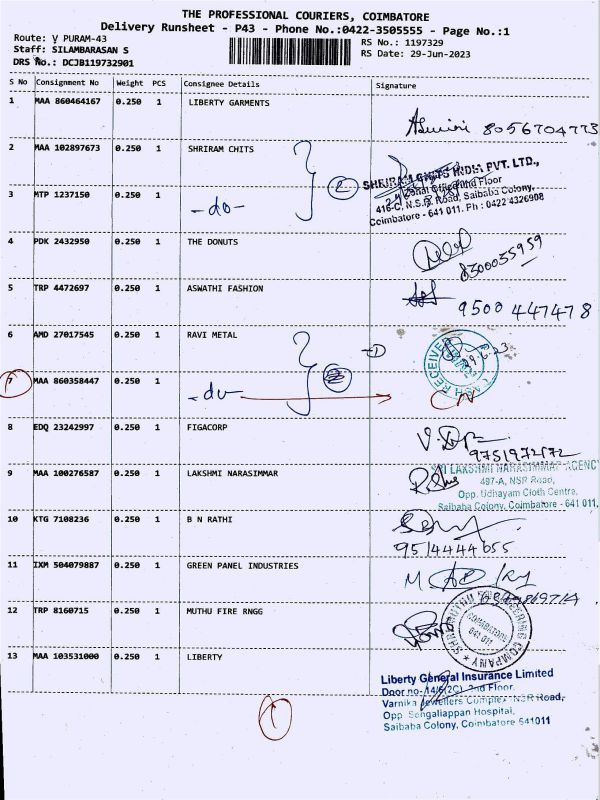 THE PROFESSIONAL COURIERS, COIMBATORE
Delivery Runsheet - P43 - Phone No.:0422-3505555 - Page No.:1
Route: V PURAM-43
RS No.: 1197329
Staff: SILAMBARASAN S
RS Date: 29-Jun-2023
DRS No.: DCJB119732901
S No Consignment No Weight PCS Consignee Details Signature
1 MAA 860464167 0.250 1 LIBERTY GARMENTS
8056704773
2 MAA 102897673 0.250 1 SHRIRAM CHITS
2
SHRIRAM CHITS INDIA PVT. LTD.,
Zonal Office 2nd Floor
416-C, N.S.R. Road, Saibaba Colony,
Coimbatore - 641 011. Ph : 0422 4326908
3 MTP 1237150 0.250 1 -do-
4 PDK 2432950 0.250 1 THE DONUTS
8300035959
5 TRP 4472697 0.250 1 ASWATHI FASHION
9500 447478
6 AMD 27017545 0.250 1 RAVI METAL
RECEIVED
7 MAA 860358447 0.250 1 -do-
8 EDQ 23242997 0.250 1 FIGACORP
9751972172
9 MAA 100276587 0.250 1 LAKSHMI NARASIMMAR
SRI LAKSHMI NARASIMMAR AGENCY
497-A, NSR Road,
Opp. Udhayam Cloth Centre,
Saibaba Colony, Coimbatore - 641 011.
10 KTG 7108236 0.250 1 B N RATHI
9514444655
11 IXM 504079887 0.250 1 GREEN PANEL INDUSTRIES
12 TRP 8160715 0.250 1 MUTHU FIRE RNGG
COIMBATORE
641 011
COMPANY
13 MAA 103531000 0.250 1 LIBERTY
Liberty General Insurance Limited
Door no-14/6(2C), 2nd Floor,
Varnika Jewellers Complex NSR Road,
Opp. Sengaliappan Hospital,
Saibaba Colony, Coimbatore 641011
1